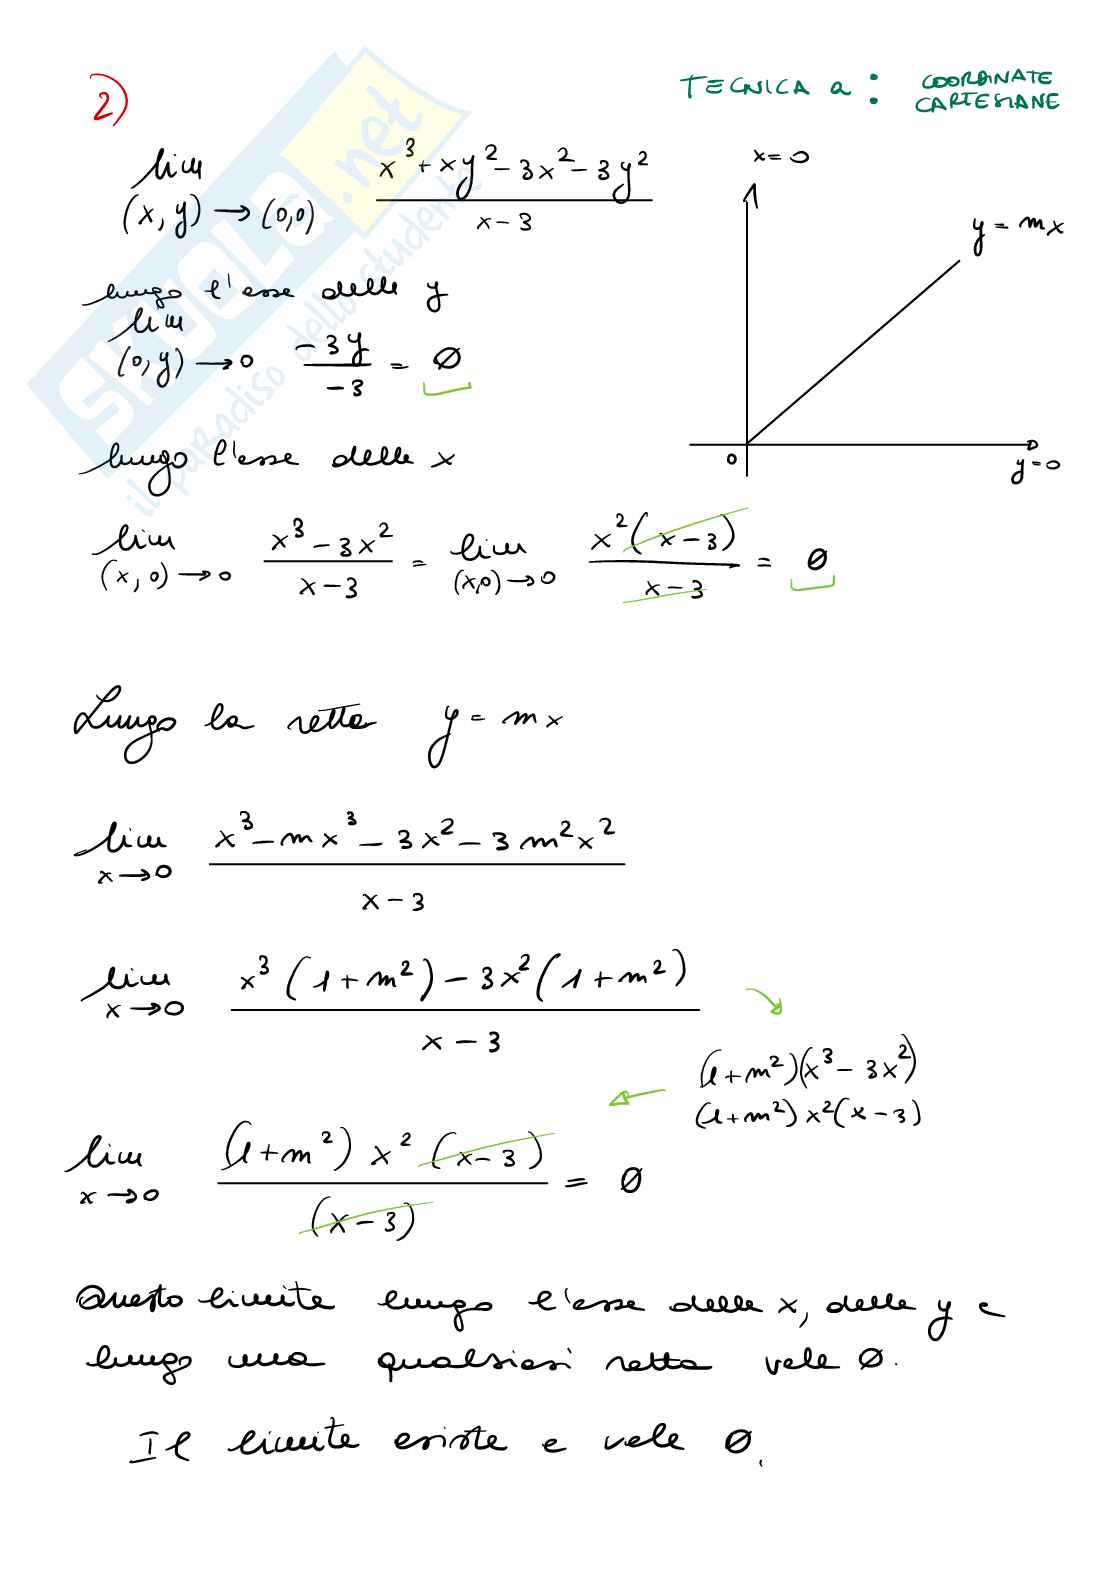 2)
TECNICA a : COORDINATE CARTESIANE
lim (x, y) → (0,0) x³ + xy² - 3x² - 3y² / x - 3
x = 0
y = mx
0
y = 0
lungo l'asse delle y
lim (0, y) → 0 -3y / -3 = ∅
lungo l'asse delle x
lim (x, 0) → 0 x³ - 3x² / x - 3 = lim (x,0) → 0 x² (x - 3) / x - 3 = ∅
Lungo la retta y = mx
lim x → 0 x³ - mx³ - 3x² - 3m²x² / x - 3
lim x → 0 x³ (1 + m²) - 3x² (1 + m²) / x - 3
(1 + m²)(x³ - 3x²)
(1 + m²) x² (x - 3)
lim x → 0 (1 + m²) x² (x - 3) / (x - 3) = ∅
Questo limite lungo l'asse delle x, delle y e
lungo una qualsiasi retta vale ∅.
Il limite esiste e vale ∅.
SKUOLA.net
il paradiso dello studente